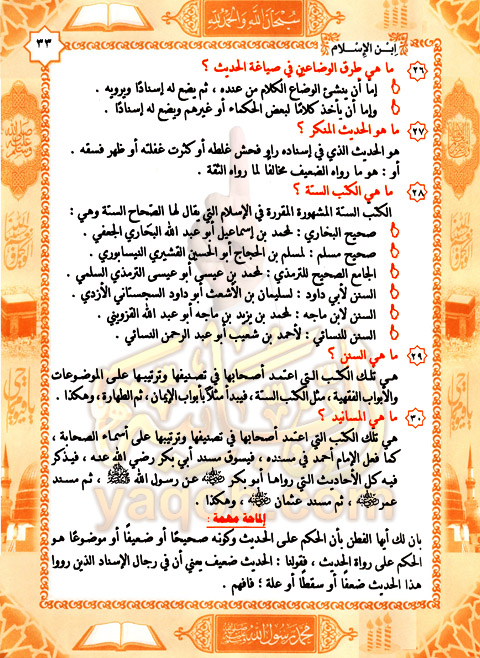 سبحان الله والحمد لله
٣٣
ابن الإسلام
٢٦ ما هي طرق الوضاعين في صياغة الحديث ؟
إما أن ينشئ الوضاع الكلام من عنده ، ثم يضع له إسنادًا ويرويه .
وإما أن يأخذ كلامًا لبعض الحكماء أو غيرهم ويضع له إسنادًا .
٢٧ ما هو الحديث المنكر ؟
هو الحديث الذي في إسناده راوٍ فحش غلطه أو كثرت غفلته أو ظهر فسقه .
أو : هو ما رواه الضعيف مخالفًا لما رواه الثقة .
٢٨ ما هي الكتب الستة ؟
الكتب الستة المشهورة المقررة في الإسلام التي يقال لها الصِّحاح الستة وهي :
صحيح البخاري : لمحمد بن إسماعيل أبو عبد الله البخاري الجعفي .
صحيح مسلم : لمسلم بن الحجاج أبو الحسين القشيري النيسابوري .
الجامع الصحيح للترمذي : لمحمد بن عيسى أبو عيسى الترمذي السلمي .
السنن لأبي داود : لسليمان بن الأشعث أبو داود السجستاني الأزدي .
السنن لابن ماجه : لمحمد بن يزيد بن ماجه أبو عبد الله القزويني .
السنن للنسائي : لأحمد بن شعيب أبو عبد الرحمن النسائي .
٢٩ ما هي السنن ؟
هي تلك الكتب التي اعتمد أصحابها في تصنيفها وترتيبها على الموضوعات
والأبواب الفقهية، مثل الكتب الستة ، فيبدأ مثلاً بأبواب الإيمان، ثم الطهارة، وهكذا .
٣٠ ما هي المسانيد ؟
هي تلك الكتب التي اعتمد أصحابها في تصنيفها وترتيبها على أسماء الصحابة ،
كما فعل الإمام أحمد في مسنده ، فيسوق مسند أبي بكر رضي الله عنه ، فيذكر
فيه كل الأحاديث التي رواها أبو بكر ﵁ عن رسول الله ﷺ ، ثم مسند
عمر ﵁ ، ثم مسند عثمان ﵁ ، وهكذا .
إلماحة مهمة :
بان لك أيها الفطن بأن الحكم على الحديث وكونه صحيحًا أو ضعيفًا أو موضوعًا هو
الحكم على رواة الحديث ، فقولنا : الحديث ضعيف يعني أن في رجال الإسناد الذين رووا
هذا الحديث ضعفًا أو سقطًا أو علة ؛ فافهم .
محمد رسول الله ﷺ